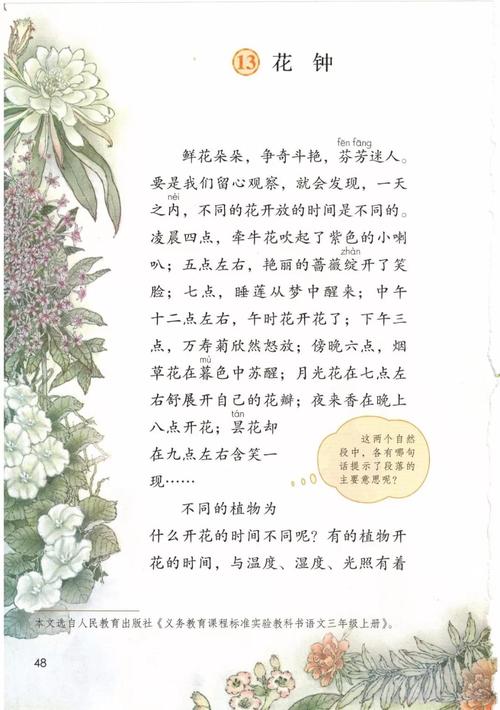 13 花钟
fēn fāng
鲜花朵朵，争奇斗艳，芬芳迷人。
要是我们留心观察，就会发现，一天
nèi
之内，不同的花开放的时间是不同的。
凌晨四点，牵牛花吹起了紫色的小喇
zhàn
叭；五点左右，艳丽的蔷薇绽开了笑
脸；七点，睡莲从梦中醒来；中午
十二点左右，午时花开花了；下午三
点，万寿菊欣然怒放；傍晚六点，烟
mù
草花在暮色中苏醒；月光花在七点左
右舒展开自己的花瓣；夜来香在晚上
tán
八点开花；昙花却
在九点左右含笑一
现……
这两个自然
段中，各有哪句
话提示了段落的
主要意思呢？
不同的植物为
什么开花的时间不同呢？有的植物开
花的时间，与温度、湿度、光照有着
本文选自人民教育出版社《义务教育课程标准实验教科书语文三年级上册》。
48